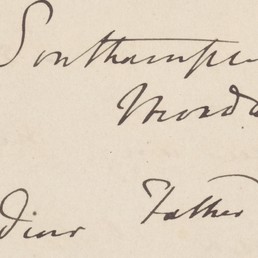 Southampton
Monda
dear Father